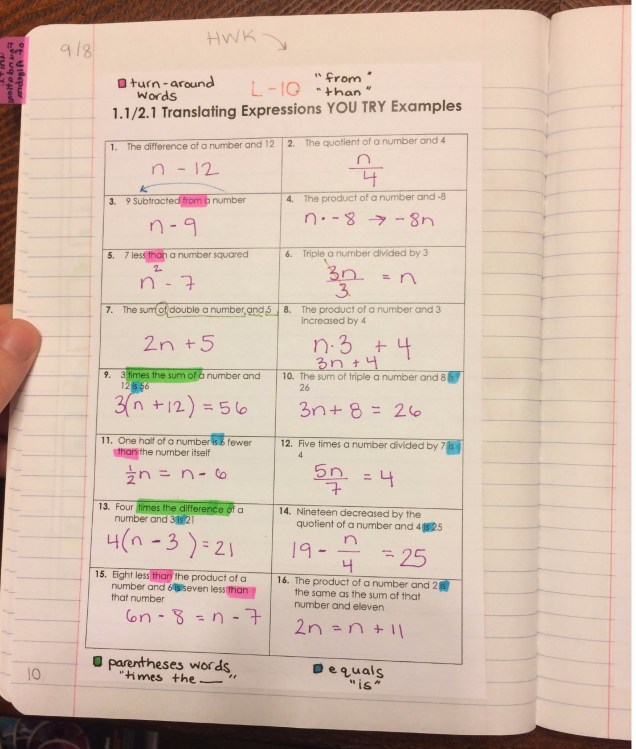 HWK
9/8
turn-around
words
L-1Q
"from"
"than"
1.1/2.1 Translating Expressions YOU TRY Examples
1. The difference of a number and 12
n - 12
2. The quotient of a number and 4
n
4
3. 9 Subtracted from a number
n - 9
4. The product of a number and -8
n · -8 → -8n
5. 7 less than a number squared
n² - 7
6. Triple a number divided by 3
3n
3
= n
7. The sum of double a number and 5
2n + 5
8. The product of a number and 3
increased by 4
n·3 + 4
3n + 4
9. 3 times the sum of a number and
12 is 56
3(n + 12) = 56
10. The sum of triple a number and 8 is
26
3n + 8 = 26
11. One half of a number is 6 fewer
than the number itself
½n = n - 6
12. Five times a number divided by 7 is
4
5n
7
= 4
13. Four times the difference of a
number and 3 is 21
4(n - 3) = 21
14. Nineteen decreased by the
quotient of a number and 4 is 25
19 -
n
4
= 25
15. Eight less than the product of a
number and 6 is seven less than
that number
6n - 8 = n - 7
16. The product of a number and 2 is
the same as the sum of that
number and eleven
2n = n + 11
parentheses words
"times the ___"
equals
"is"
10